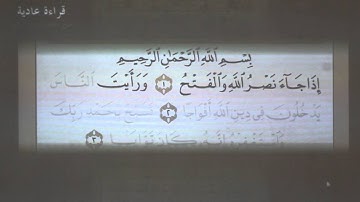 قراءة عادية
بِسْمِ اللَّهِ الرَّحْمَٰنِ الرَّحِيمِ
إِذَا جَاءَ نَصْرُ اللَّهِ وَالْفَتْحُ ١ وَرَأَيْتَ النَّاسَ
يَدْخُلُونَ فِي دِينِ اللَّهِ أَفْوَاجًا ٢ فَسَبِّحْ بِحَمْدِ رَبِّكَ
وَاسْتَغْفِرْهُ إِنَّهُ كَانَ تَوَّابًا ٣